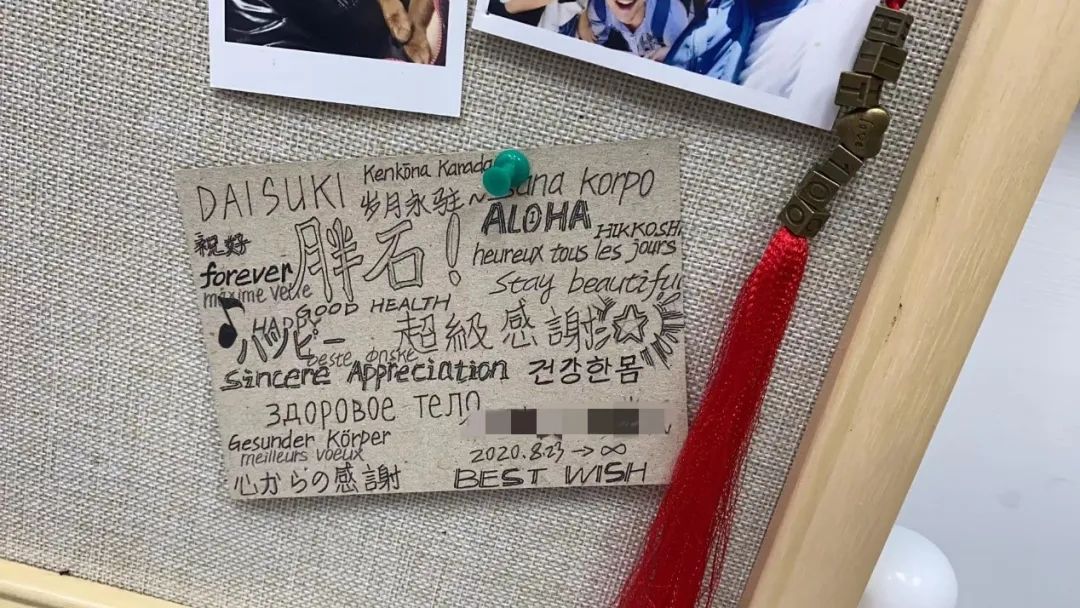 DAISUKI
Kenkōna Karada
岁月永驻
sana korpo
ALOHA
HIKKOSHI
祝好
胖石!
heureux tous les jours
forever
maxime velle
Stay beautiful
GOOD HEALTH
HAPPY
ハッピー
超級感謝
beste ønske
Sincere Appreciation
건강한몸
здоровое тело
Gesunder Körper
meilleurs voeux
2020.8.23→∞
心からの感謝
BEST WISH
love
100